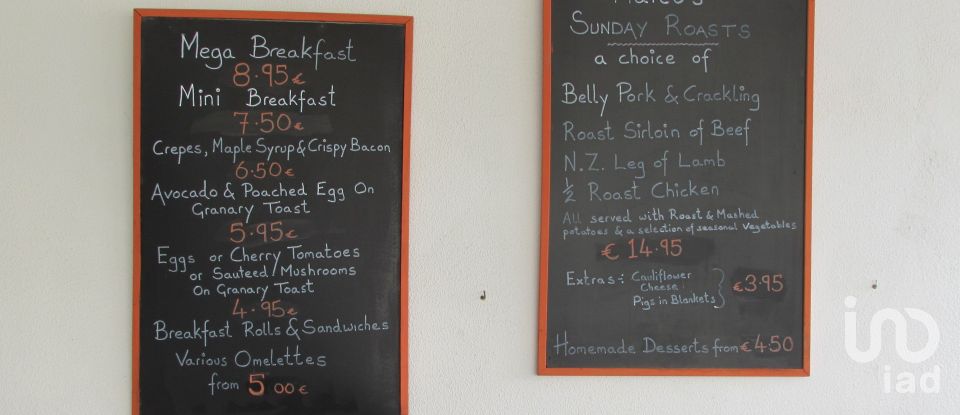 Mega Breakfast
8.95€
Mini Breakfast
7.50€
Crepes, Maple Syrup & Crispy Bacon
6.50€
Avocado & Poached Egg On
Granary Toast
5.95€
Eggs or Cherry Tomatoes
or Sauteed Mushrooms
On Granary Toast
4.95€
Breakfast Rolls & Sandwiches
Various Omelettes
from 5 00€
SUNDAY ROASTS
a choice of
Belly Pork & Crackling
Roast Sirloin of Beef
N.Z. Leg of Lamb
½ Roast Chicken
All served with Roast & Mashed
potatoes & a selection of seasonal vegetables
€ 14.95
Extras:- Cauliflower
Cheese
Pigs in Blankets
€3.95
Homemade Desserts from €4.50
iad